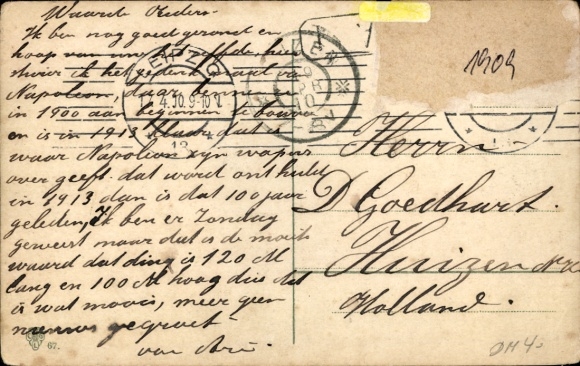 Waarde Ouders
Ik ben nog goed gezond en
hoop van u het zelfde, hier
stuur ik het gedenk raad van
Napoleon, daar bennen ze
in 1900 aan begonnen te bouwen
en is in 1913 klaar, dat is
waar Napoleon zijn wapens
over geeft. dat word onthuld
in 1913 dan is dat 100 jaar
geleden, Ik ben er Zondag
geweest maar dat is de moeite
waard dat ding is 120 M
lang en 100 M hoog dus dat
is wat moois, meer geen
nieuws gegroet
van Arie
LEIPZIG
4.10.9-10V.
13
1909
Herrn
D Goedhart.
Huizen
Holland.
67.